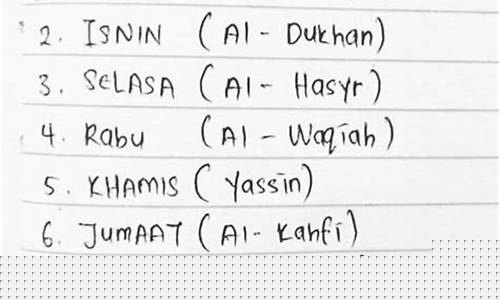 2. ISNIN (Al - Dukhan)
3. SELASA (Al - Hasyr)
4. Rabu (Al - Waqiah)
5. KHAMIS (Yassin)
6. JUMAAT (Al- Kahfi)